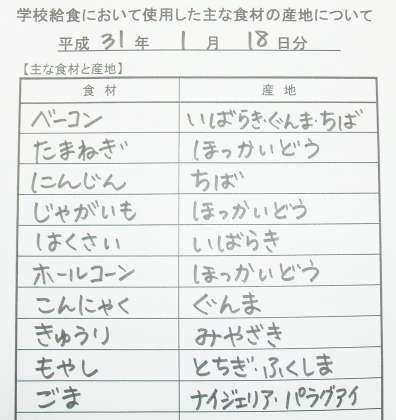 学校給食において使用した主な食材の産地について
平成 31 年 1 月 18 日分
【主な食材と産地】
食 材 産 地
ベーコン いばらき・ぐんま・ちば
たまねぎ ほっかいどう
にんじん ちば
じゃがいも ほっかいどう
はくさい いばらき
ホールコーン ほっかいどう
こんにゃく ぐんま
きゅうり みやざき
もやし とちぎ・ふくしま
ごま ナイジェリア・パラグアイ